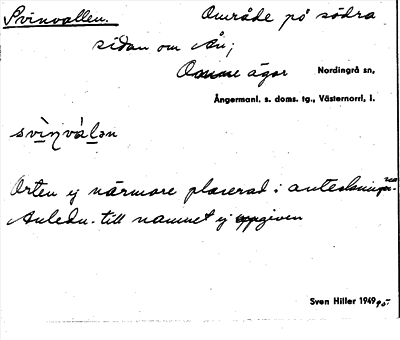 Svinvallen. Område på södra
sidan om Ån;
Omne ägor Nordingrå sn,
Ångermanl. s. doms. tg., Västernorrl, l.
svìnvàlən
Orten ej närmare placerad i anteckningarna.
Anledn. till namnet ej uppgiven
Sven Hiller 1949